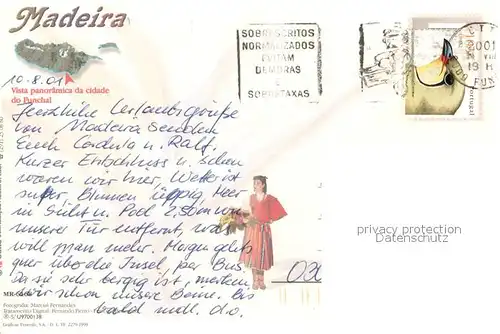 Madeira
10-8.01
Vista panorâmica da cidade
do Funchal
SOBRESCRITOS
NORMALIZADOS
EVITAM
DEMORAS
E
SOBRETAXAS
Portugal
Herzliche Urlaubsgrüße
von Madeira senden
Euch Cordula u. Ralf.
Kurzer Entschluss u. schon
waren wir hier, Wetter ist
super, Blumen üppig, Meer
in Sicht u. Pool 2,50m von
unserer Tür entfernt, was
will man mehr. Morgen gehts
quer über die Insel, per Bus
Da sie sehr bergig ist, merken
wir schon unsere Beine. Bis
bald mall. d.o.
privacy protection
Datenschutz
Fotografia: Marcial Fernandes